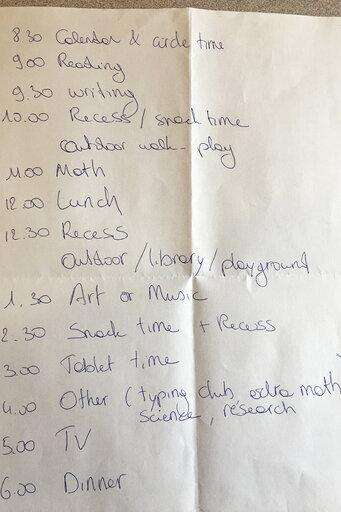 8.30 Calendar & circle time
9.00 Reading
9.30 writing
10.00 Recess / snack time
outdoor walk - play
11.00 Math
12.00 Lunch
12.30 Recess
outdoor / library / playground
1.30 Art or Music
2.30 Snack time + Recess
3.00 Tablet time
4.00 Other ( typing club, extra math
science, research
5.00 TV
6.00 Dinner